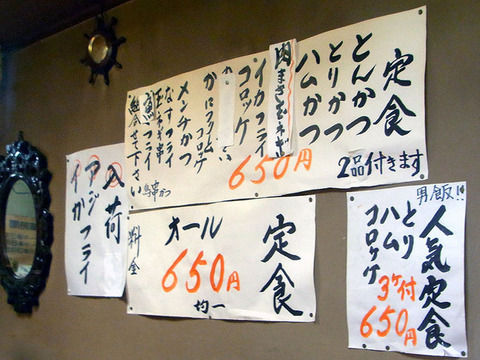 定食
とんかつ
とりかつ
ハムかつ
肉まき玉ネギ
イカフライ
コロッケ
かにクリーム
コロッケ
メンチかつ
なすフライ
玉ネギ串
魚フライ
組合せて下さい
串かつ
650円
2品付きます
入荷
アジ
イカフライ
定食
オール
650円
均一
料金
男飯!!
人気定食
とり
ハム
コロッケ
3ケ付
650円